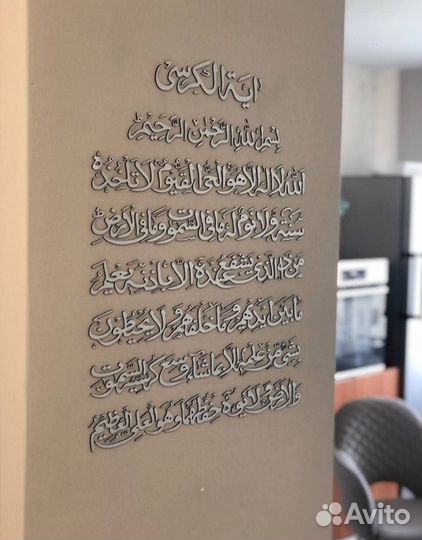 اية الكرسي
بسم الله الرحمن الرحيم
الله لا اله الا هو الحي القيوم لا تأخذه
سنة ولا نوم له ما في السموت وما في الارض
من ذا الذي يشفع عنده الا باذنه يعلم
ما بين ايديهم وما خلفهم ولا يحيطون
بشيء من علمه الا بما شاء وسع كرسيه السموت
والارض ولا يوده حفظهما وهو العلي العظيم
Avito